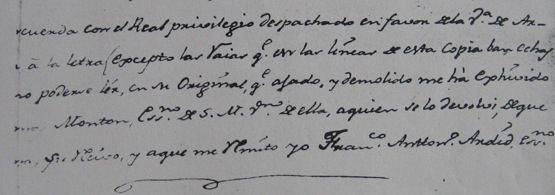 cuenda con el Real privilegio despachado en favor de la V.ª de An-
à la letra (excepto las raias q.e en las líneas de esta Copia ban echas
no poderse leer, en su Original, q.e ajado, y demolido me ha exhivido
Monton, Ess.no de S. M. de ella, a quien se lo devolví; de que
y a que me remito yo Fran.co Antton.o Andíd. Ess.no